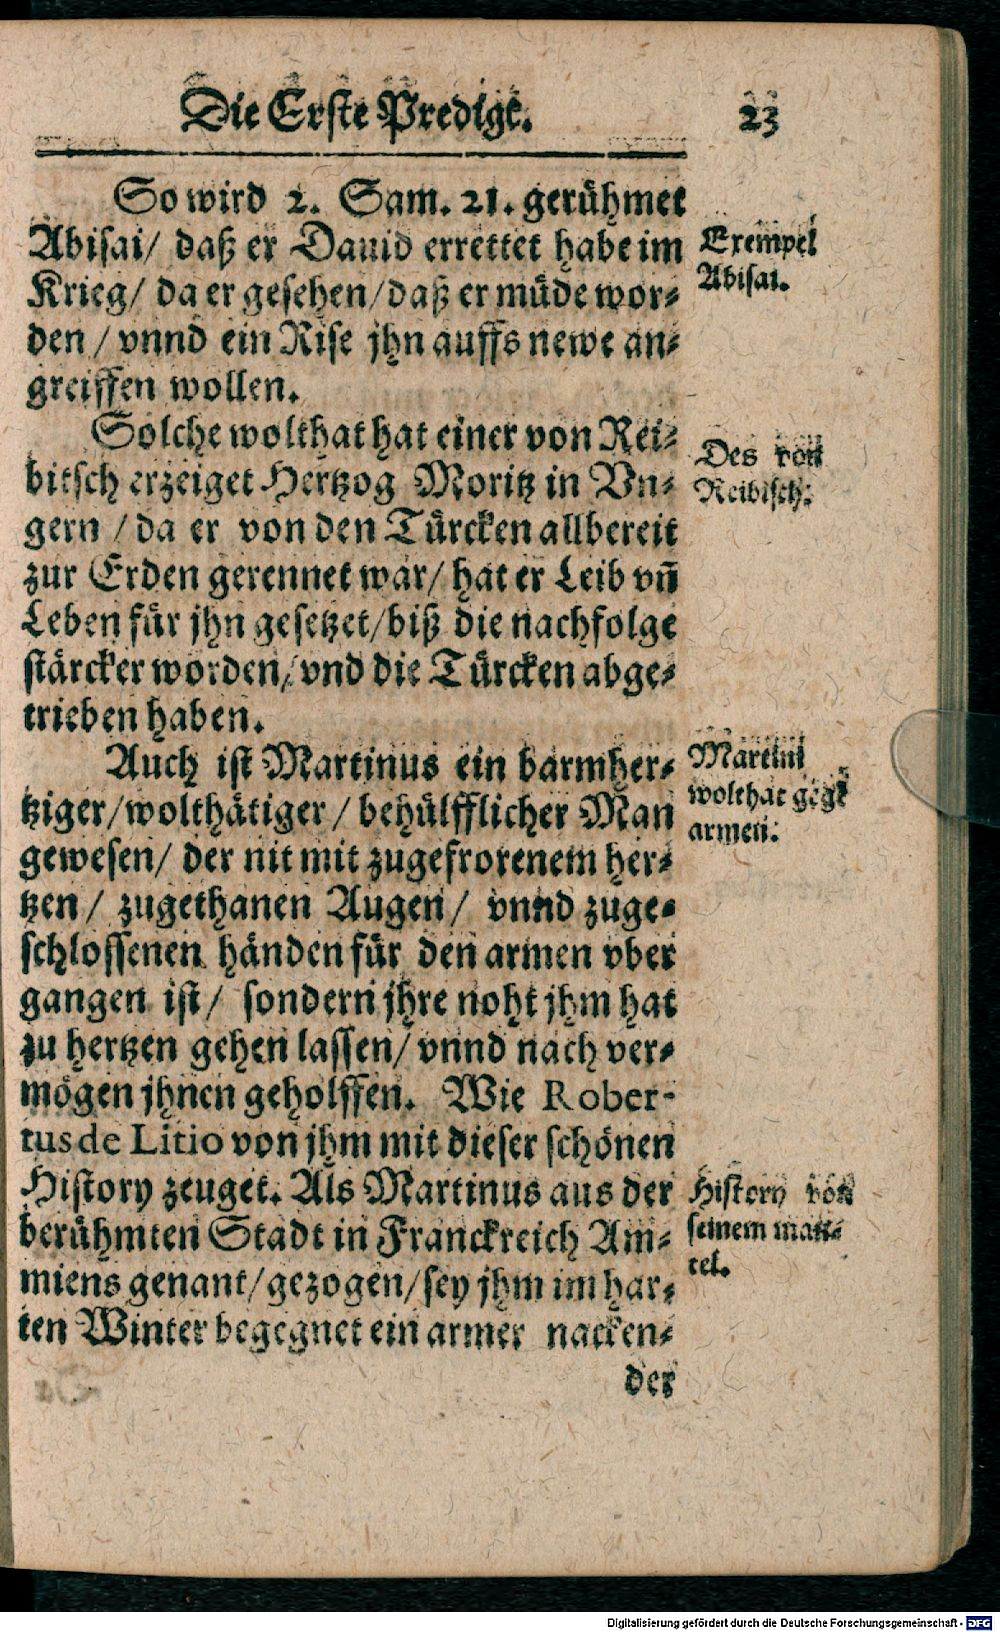 Die Erste Predigt. 23
So wird 2. Sam. 21. gerühmet
Abisai/ daß er Dauid errettet habe im
Krieg/ da er gesehen/daß er müde wor-
den / vnnd ein Rise jhn auffs newe an-
greiffen wollen.
Exempel
Abisai.
Solche wolthat hat einer von Rei-
bitsch erzeiget Hertzog Moritz in Vn-
gern / da er von den Türcken allbereit
zur Erden gerennet war/ hat er Leib vñ
Leben für jhn gesetzet/biß die nachfolge
stärcker worden/vnd die Türcken abge-
trieben haben.
Des von
Reibisch.
Auch ist Martinus ein barmher-
tziger/wolthätiger / behülfflicher Man
gewesen/ der nit mit zugefrorenem her-
tzen / zugethanen Augen / vnnd zuge-
schlossenen händen für den armen vber
gangen ist/ sondern jhre noht jhm hat
zu hertzen gehen lassen/ vnnd nach ver-
mögen jhnen geholffen. Wie Rober-
tus de Litio von jhm mit dieser schönen
History zeuget. Als Martinus aus der
berühmten Stadt in Franckreich Am-
miens genant/gezogen/sey jhm im har-
ten Winter begegnet ein armer nacken-
der
Martini
wolthat gegẽ
armen.
History von
seinem man-
tel.
Digitalisierung gefördert durch die Deutsche Forschungsgemeinschaft - DFG